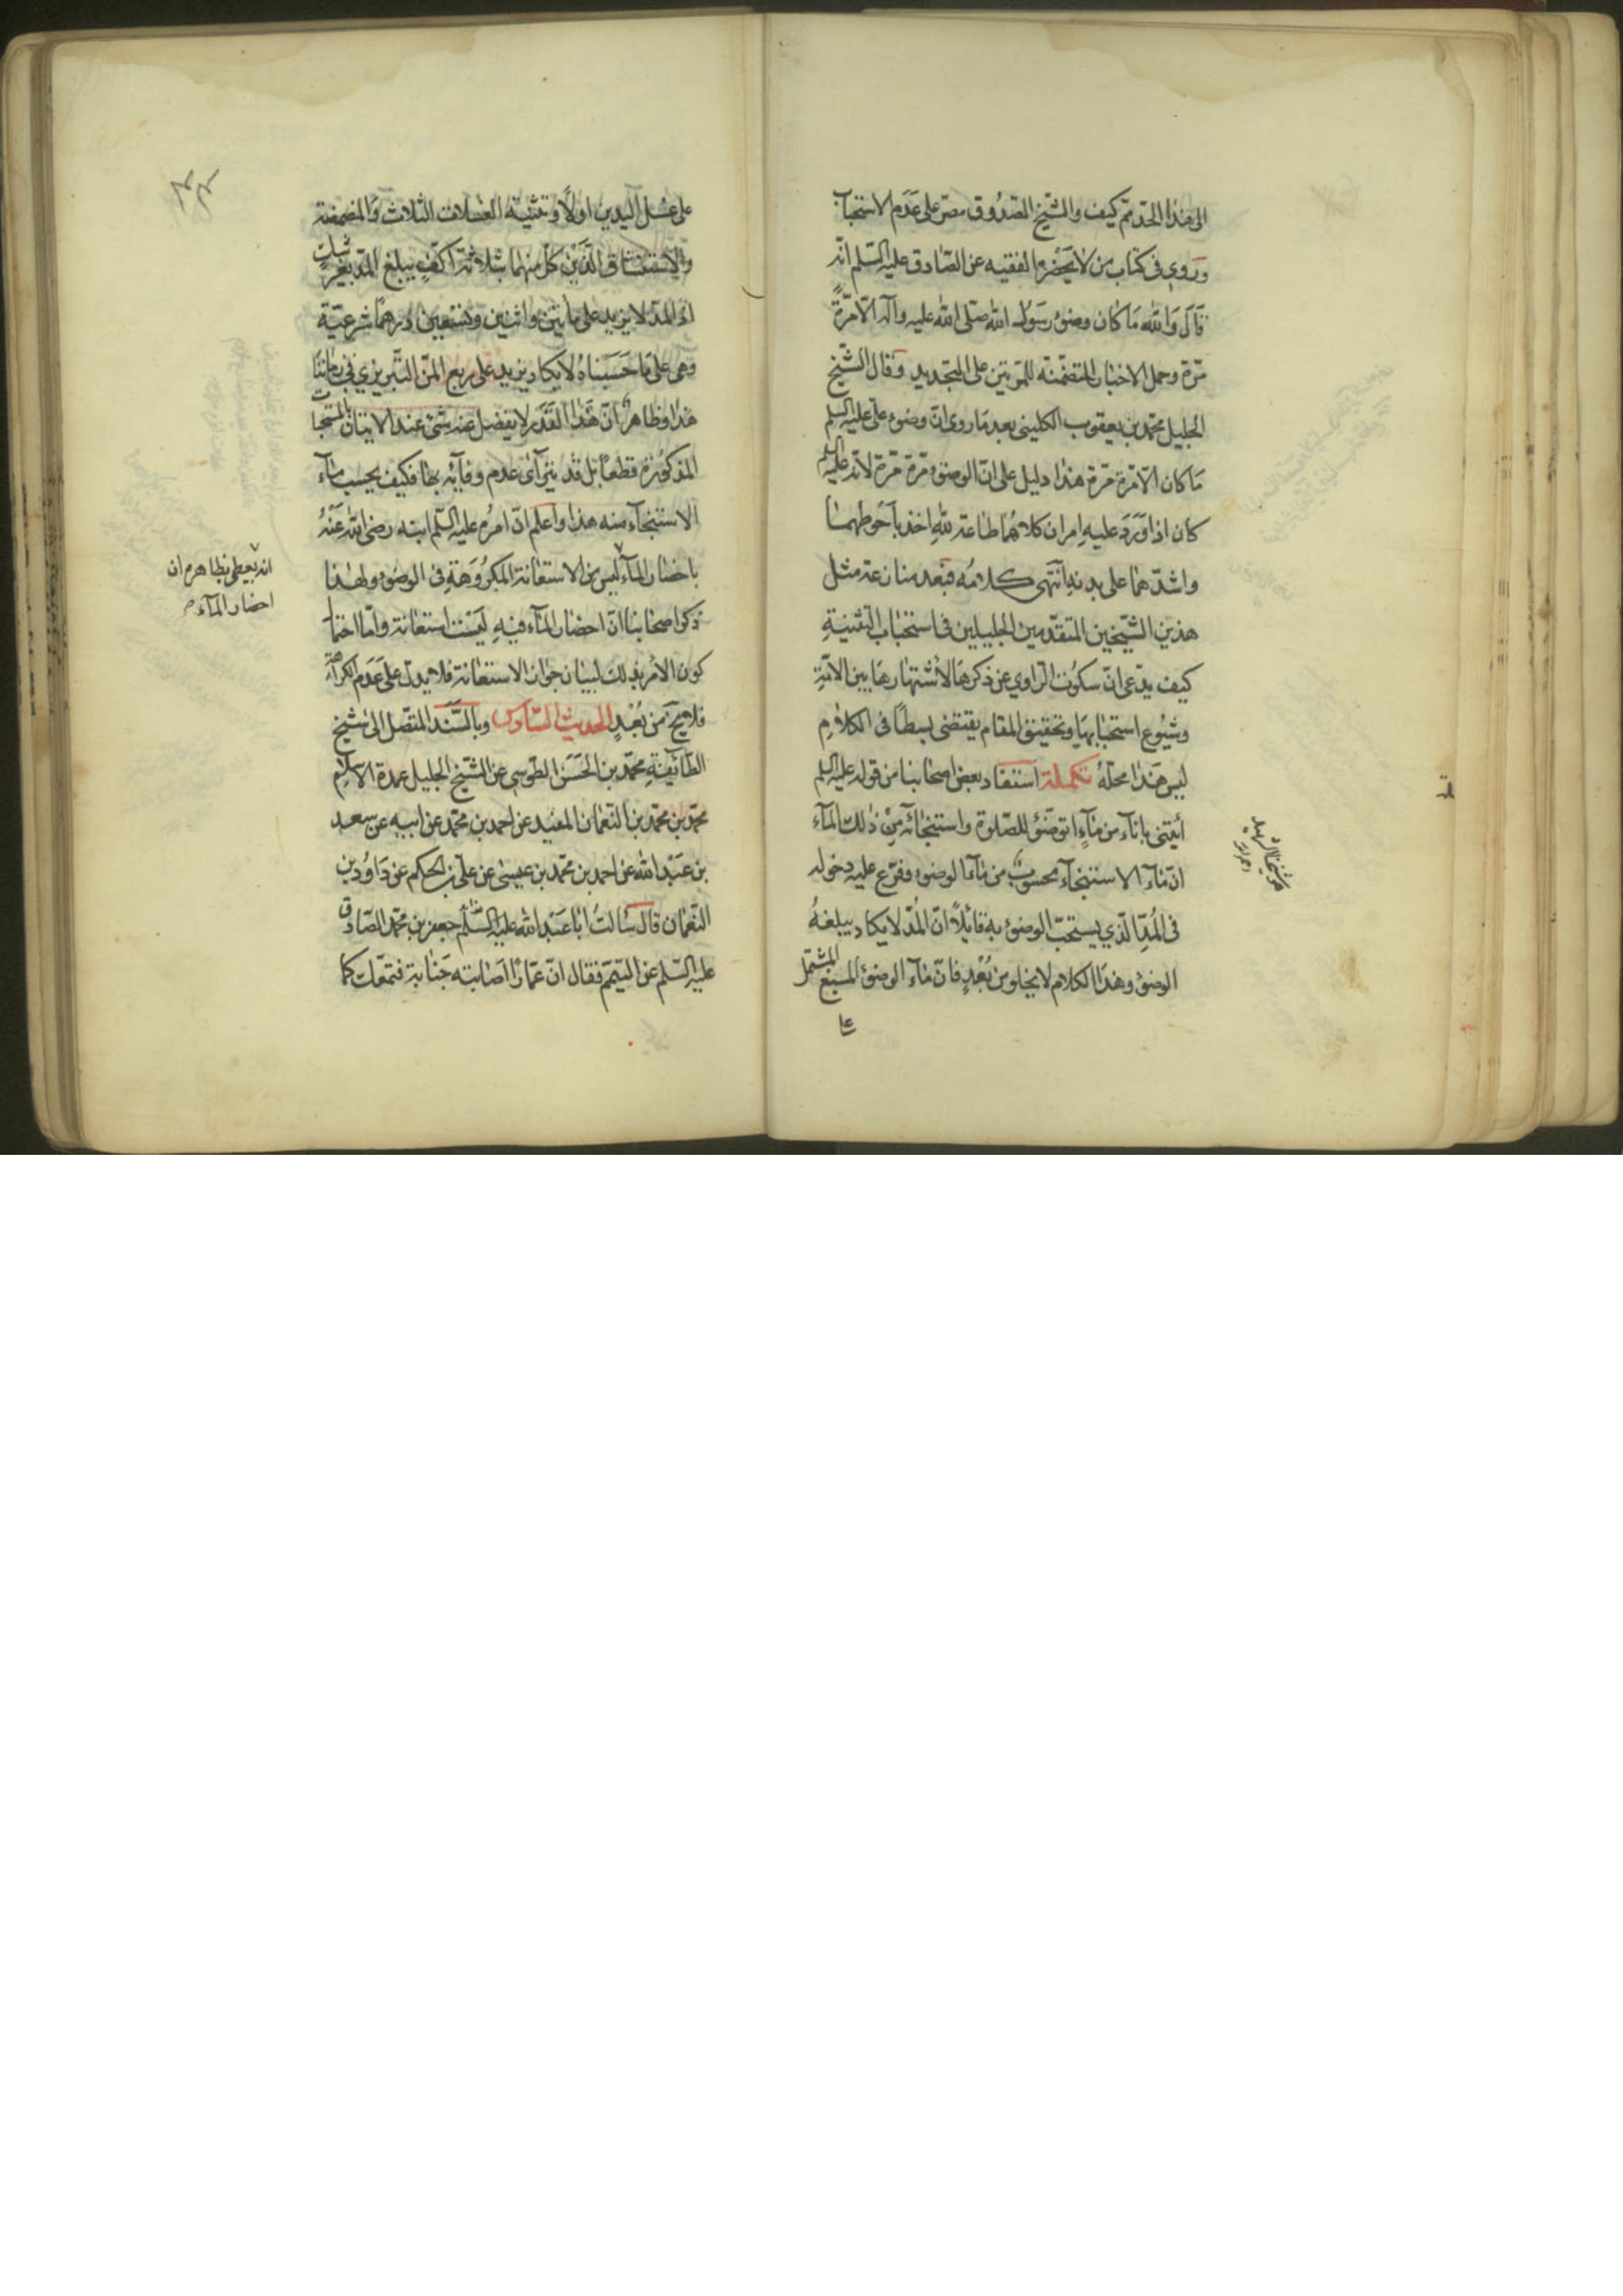 الى هذا الحد ثم كيف والشيخ الصدوق مصر على عدم الاستحباب
وروى في كتاب من لا يحضره الفقيه عن الصادق عليه السلم انه
قال والله ما كان وضوء رسول الله صلى الله عليه وآله الا مرة
مرة وحمل الاخبار المتضمنة للمرتين على التجديد وقال الشيخ
الجليل محمد بن يعقوب الكليني بعد ما روى ان وضوء علي عليه السلم
ما كان الا مرة مرة هذا دليل على ان الوضوء مرة مرة لانه عليه السلم
كان اذا ورد عليه امران كلاهما طاعة لله اخذ باحوطهما
واشدهما على بدنه انتهى كلامه فبعد منازعة مثل
هذين الشيخين المتقدمين الجليلين في استحباب التثنية
كيف يدعى ان سكوت الراوي عن ذكرها لاشتهارها بين الامة
وشيوع استحبابها وتحقيق المقام يقتضى بسطا في الكلام
ليس هذا محله تكملة استفاد بعض اصحابنا من قوله عليه السلم
ائتنى باناء من ماء اتوضئ للصلوة واستنجائه من ذلك الماء
ان ماء الاستنجاء محسوب من ماء الوضوء وفرع عليه دخوله
في المد الذي يستحب الوضوء به قائلا ان المد لا يكاد يبلغه
الوضوء وهذا الكلام لا يخلو من بعد فان ماء الوضوء المسبغ المشتمل
على
هو شيخنا الشهيد
على غسل اليدين اولا وتثنية الغسلات الثلاث والمضمضة
والاستنشاق الذين كل منهما بثلاثة اكف يبلغ المد بغير شك
اذ المد لا يزيد على مأتين واثنين وتسعين درهما شرعية
وهى على ما حسبناه لا يكاد يزيد على ربع المن التبريزي في زماننا
هذا وظاهر ان هذا القدر لا يفضل عنه شئ عند الاتيان بالمستحبات
المذكورة قطعا بل قد يترآى عدم وفائه بها فكيف يحسب ماء
الاستنجاء منه هذا واعلم ان امره عليه السلم ابنه رضى الله عنه
باحضار الماء ليس من الاستعانة المكروهة في الوضوء ولهذا
ذكر اصحابنا ان احضار الماء فيه ليست استعانة واما احتمال
كون الامر بذلك لبيان جواز الاستعانة فلا يدل على عدم الكراهة
فلا يخ من بعد الحديث السادس وبالسند المتصل الى شيخ
الطائفة محمد بن الحسن الطوسي عن الشيخ الجليل عمدة الاسلام
محمد بن محمد بن النعمان المفيد عن احمد بن محمد عن ابيه عن سعد
بن عبد الله عن احمد بن محمد بن عيسى عن علي بن الحكم عن داود بن
النعمان قال سالت ابا عبد الله عليه السلام جعفر بن محمد الصادق
عليه السلم عن التيمم فقال ان عمارا اصابته جنابة فتمعك كما
انه يعطى بظاهره ان
احضار الماء